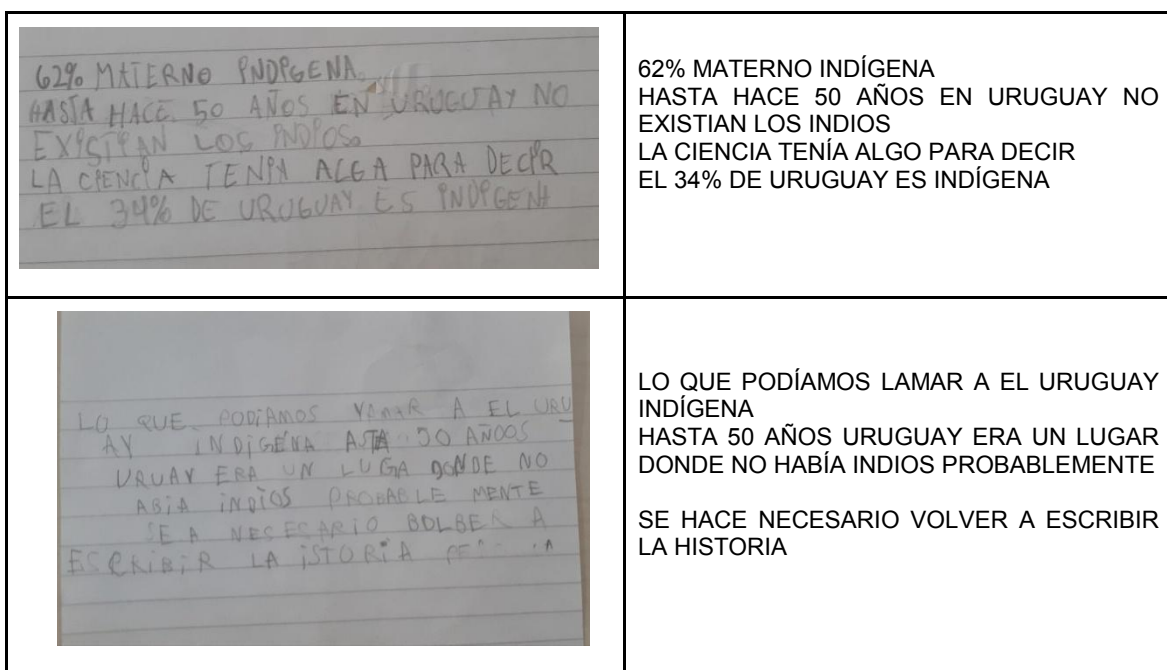 62% MATERNO INDIGENA.
HASTA HACE 50 AÑOS EN URUGUAY NO
EXISTIAN LOS INDIOS.
LA CIENCIA TENIA ALGA PARA DECIR
EL 34% DE URUGUAY ES INDIGENA
62% MATERNO INDÍGENA
HASTA HACE 50 AÑOS EN URUGUAY NO
EXISTIAN LOS INDIOS
LA CIENCIA TENÍA ALGO PARA DECIR
EL 34% DE URUGUAY ES INDÍGENA
LO QUE PODIAMOS YAMAR A EL URU
AY INDIGENA ASTA 50 AÑOOS
URUAY ERA UN LUGA DONDE NO
ABIA INDIOS PROBABLE MENTE
SE A NESESARIO BOLBER A
ESCRIBIR LA ISTORIA
LO QUE PODÍAMOS LAMAR A EL URUGUAY
INDÍGENA
HASTA 50 AÑOS URUGUAY ERA UN LUGAR
DONDE NO HABÍA INDIOS PROBABLEMENTE
SE HACE NECESARIO VOLVER A ESCRIBIR
LA HISTORIA